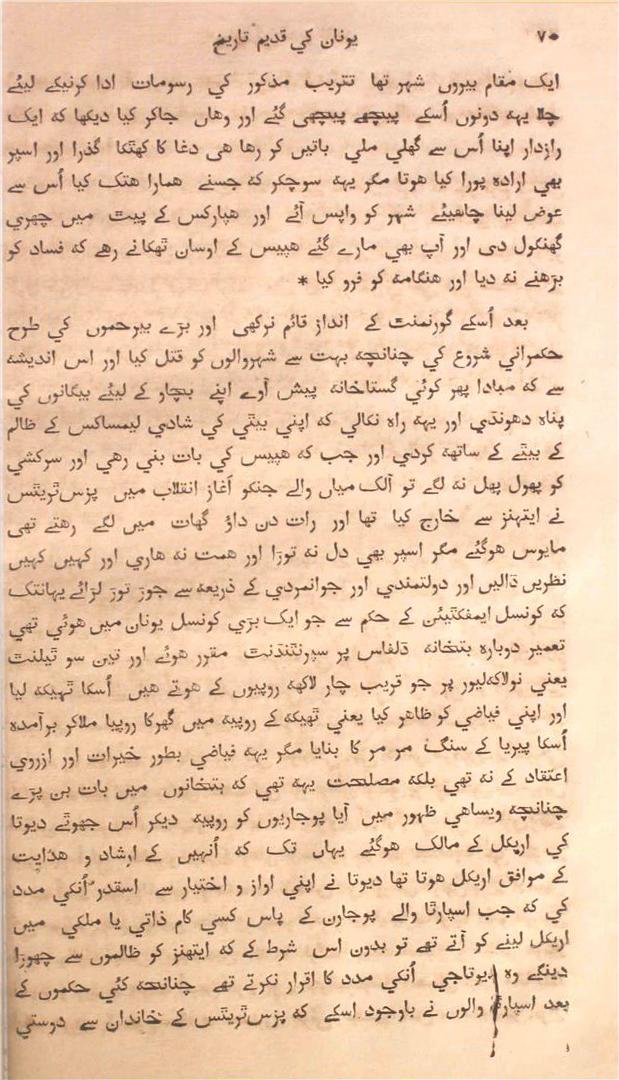 ۷۰ یونان کي قدیم تاریخ
ایک مقام بیروں شہر تھا تتریب مذکور کي رسومات ادا کرنیکے لیئے
چلا یہہ دونوں اُسکے پیچھے پیچھے گئے اور وھاں جاکر کیا دیکھا کہ ایک
رازدار اپنا اُس سے گھلي ملي باتیں کر رھا ھی دغا کا کھٹکا گذرا اور اسپر
بھي ارادہ پورا کیا ھوتا مگر یہہ سوچکر کہ جسنے ھمارا ھتک کیا اُس سے
عوض لینا چاھیئے شہر کو واپس آئے اور ھپارکس کے پیٹ میں چھري
گھنکول دی اور آپ بھي مارے گئے ھپیس کے اوسان ٹھکانے رھے کہ فساد کو
بڑھنے نہ دیا اور ھنگامہ کو فرو کیا *
بعد اُسکے گورنمنٹ کے انداز قائم نرکھی اور بڑے بیرحموں کي طرح
حکمراني شروع کي چنانچہ بہت سے شہروالوں کو قتل کیا اور اس اندیشہ
سے کہ مبادا پھر کوئي گستاخانہ پیش آوے اپنے بچاو کے لیئے بیگانوں کي
پناہ دھونڈي اور یہہ راہ نکالي کہ اپني بیٹي کي شادي لیمساکس کے ظالم
کے بیٹے کے ساتھہ کردي اور جب کہ ھپیس کي بات بني رھي اور سرکشي
کو پھول پھل نہ لگے تو آلک میاں والے جنکو آغاز انقلاب میں پزس ٹریٹس
نے ایتھنز سے خارج کیا تھا اور رات دن داؤ گھات میں لگے رھتے تھی
مایوس ھوگئے مگر اسپر بھي دل نہ توڑا اور ھمت نہ ھاري اور کہیں کہیں
نظریں ڈالیں اور دولتمندي اور جوانمردي کے ذریعہ سے جوڑ توڑ لڑائے یہانتک
کہ کونسل ایمفکٹیئن کے حکم سے جو ایک بڑي کونسل یونان میں ھوئي تھي
تعمیر دوبارہ بتخانہ ڈلفاس پر سپرنٹنڈنٹ مقرر ھوئے اور تین سو ٹیلنٹ
یعني نولاکہ لیور پر جو قریب چار لاکھہ روپیوں کے ھوتے ھیں اُسکا ٹہیکہ لیا
اور اپني فیاضي کو ظاھر کیا یعني ٹھیکہ کے روپیہ میں گھرکا روپیا ملاکر برآمدہ
اُسکا پیریا کے سنگ مر مر کا بنایا مگر یہہ فیاضي بطور خیرات اور ازروي
اعتقاد کے نہ تھي بلکہ مصلحت یہہ تھي کہ بتخانوں میں بات بن پڑے
چنانچہ ویساھي ظہور میں آیا پوجاریوں کو روپیہ دیکر اُس جھوٹے دیوتا
کي اریکل کے مالک ھوگئے یہاں تک کہ اُنہیں کے ارشاد و ھدایت
کے موافق اریکل ھوتا تھا دیوتا نے اپني اواز و اختیار سے اسقدر اُنکي مدد
کي کہ جب اسپارٹا والے پوجارن کے پاس کسي کام ذاتي یا ملکي میں
اریکل لینے کو آتے تھے تو بدون اس شرط کے کہ ایتھنز کو ظالموں سے چھوڑا
دینگے وہ دیوتاجي اُنکي مدد کا اقرار نکرتے تھے چنانچہ کئي حکموں کے
بعد اسپارٹا والوں نے باوجود اسکے کہ پزس ٹریٹس کے خاندان سے دوستي